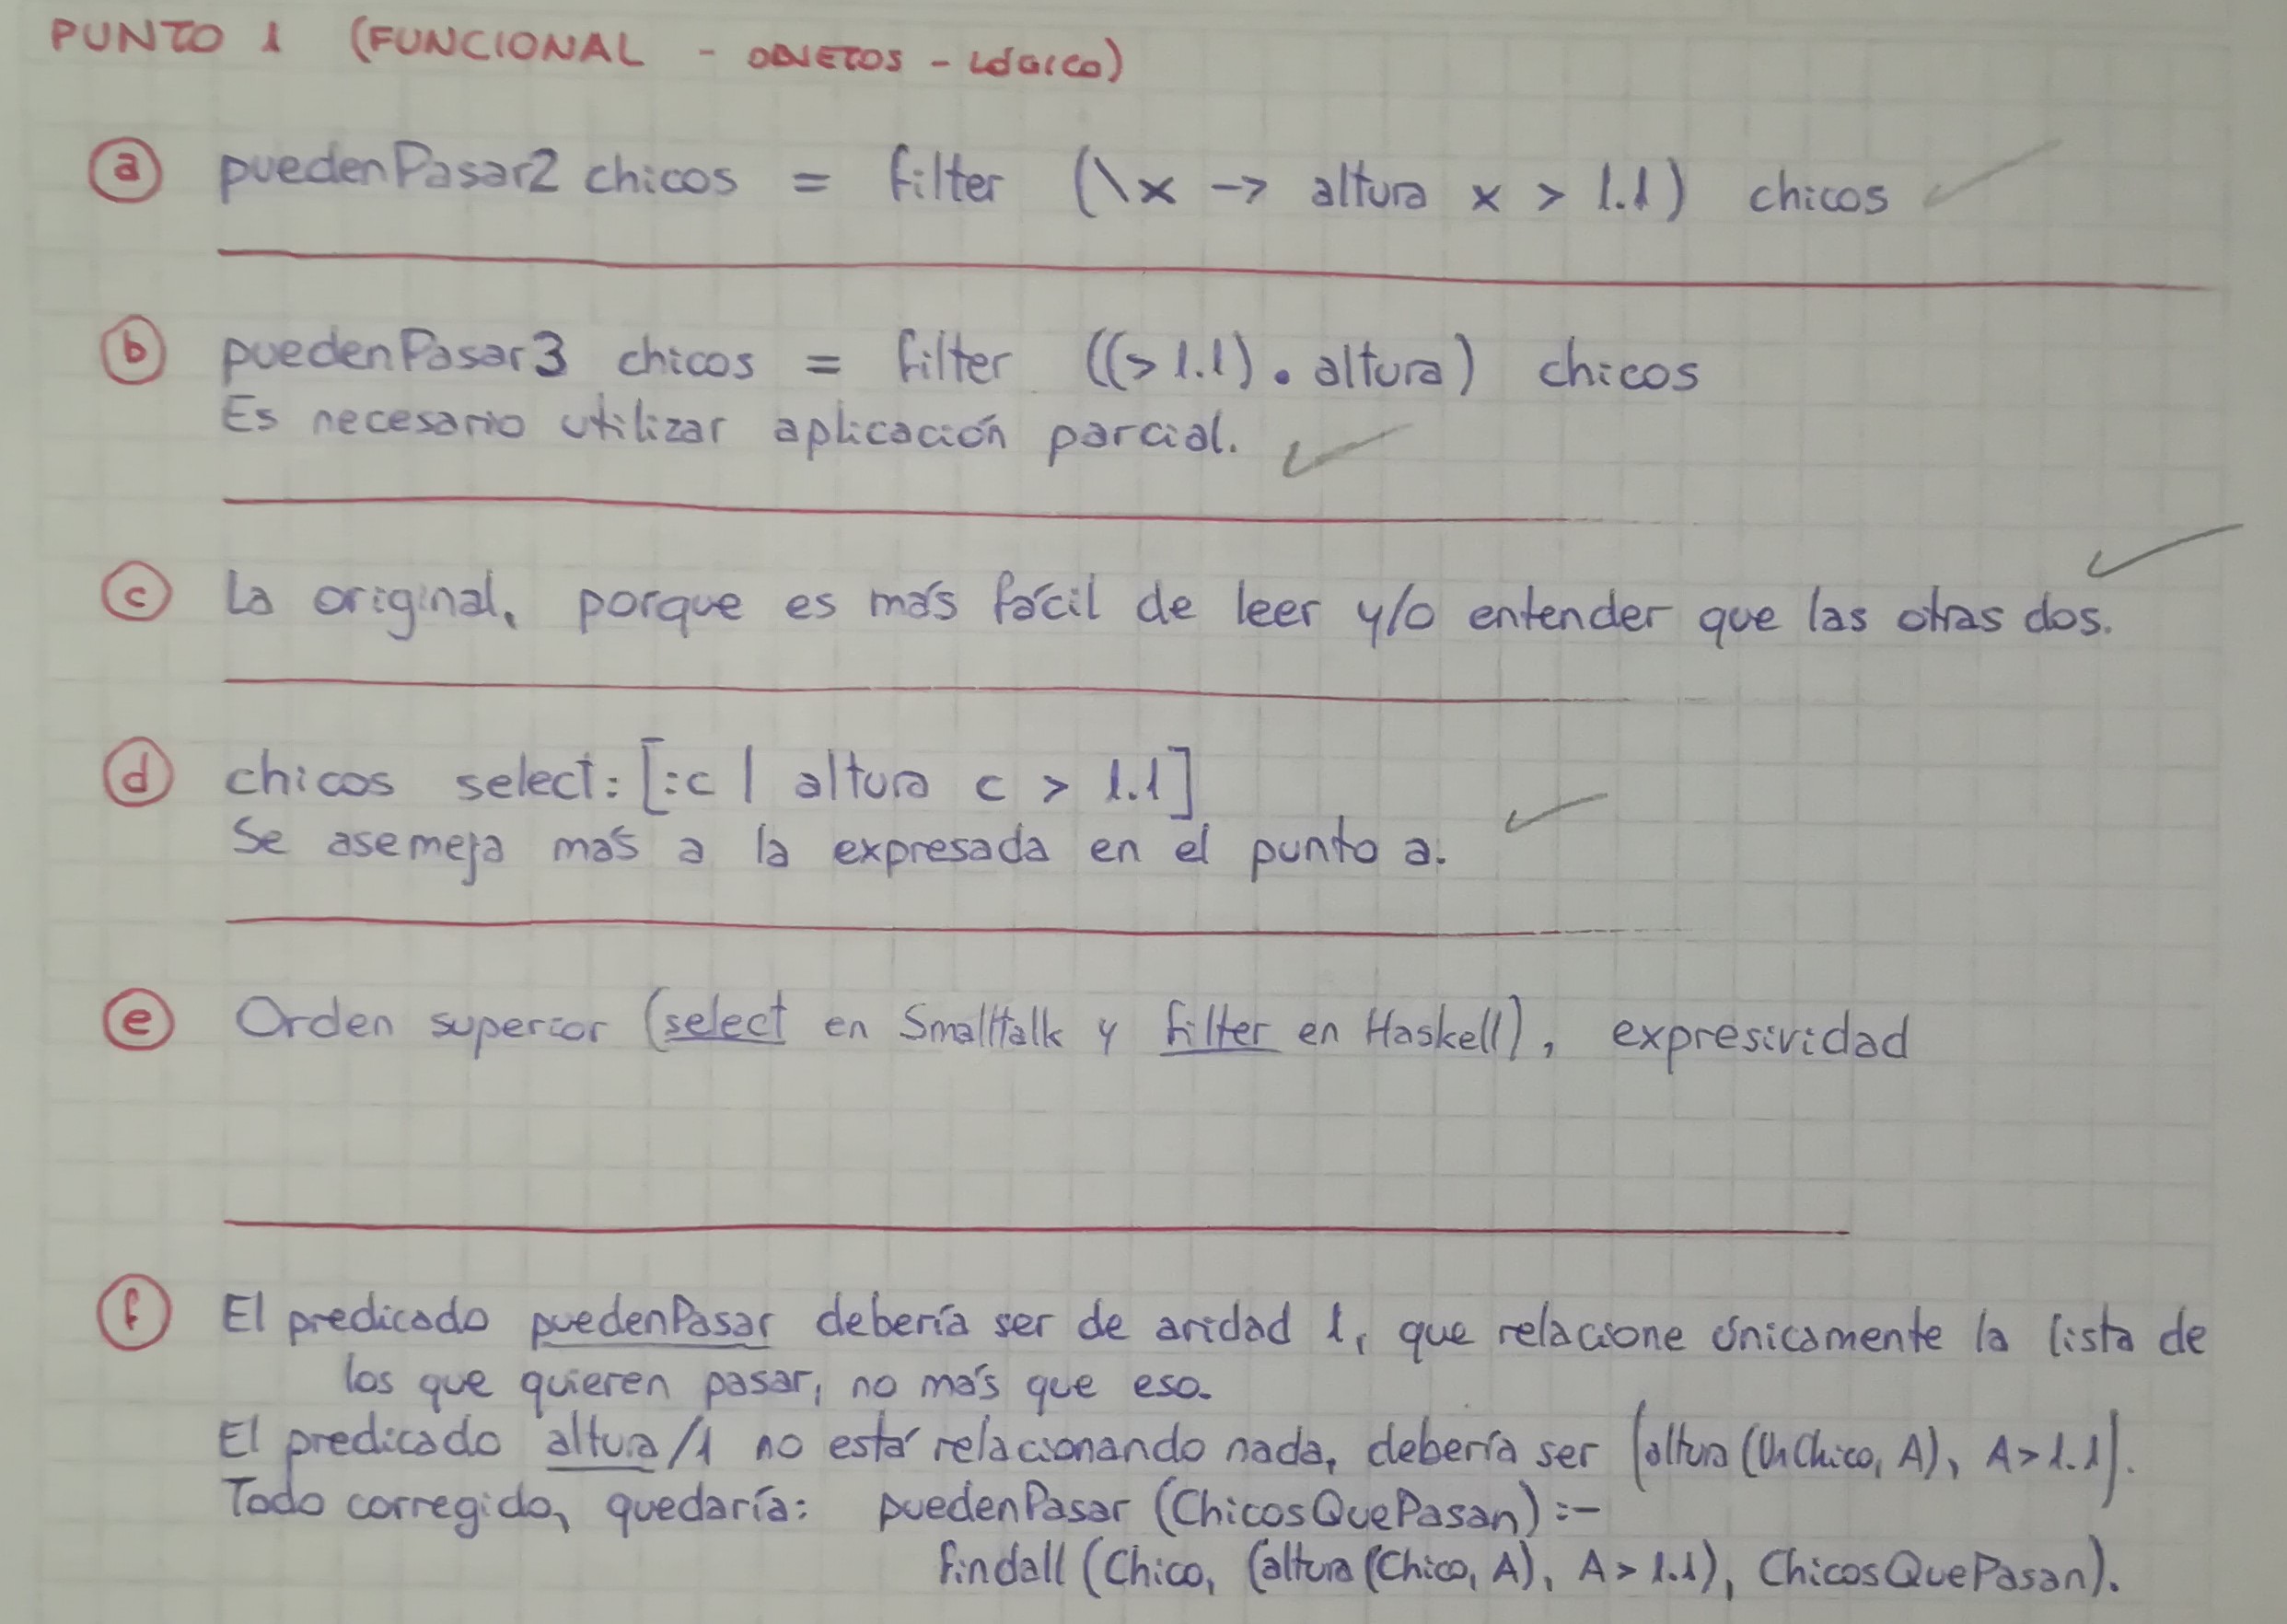 PUNTO 1 (FUNCIONAL - OBJETOS - LÓGICO)
a puedenPasar2 chicos = filter (\x -> altura x > 1.1) chicos
b puedenPasar3 chicos = filter ((>1.1) . altura) chicos
Es necesario utilizar aplicación parcial.
c La original, porque es más fácil de leer y/o entender que las otras dos.
d chicos select: [:c | altura c > 1.1]
Se asemeja más a la expresada en el punto a.
e Orden superior (select en Smalltalk y filter en Haskell), expresividad
f El predicado puedenPasar debería ser de aridad 1, que relacione únicamente la lista de
los que quieren pasar, no más que eso.
El predicado altura/1 no está relacionando nada, debería ser (altura(UnChico, A), A > 1.1).
Todo corregido, quedaría: puedenPasar (ChicosQuePasan) :-
findall (Chico, (altura(Chico, A), A > 1.1), ChicosQuePasan).